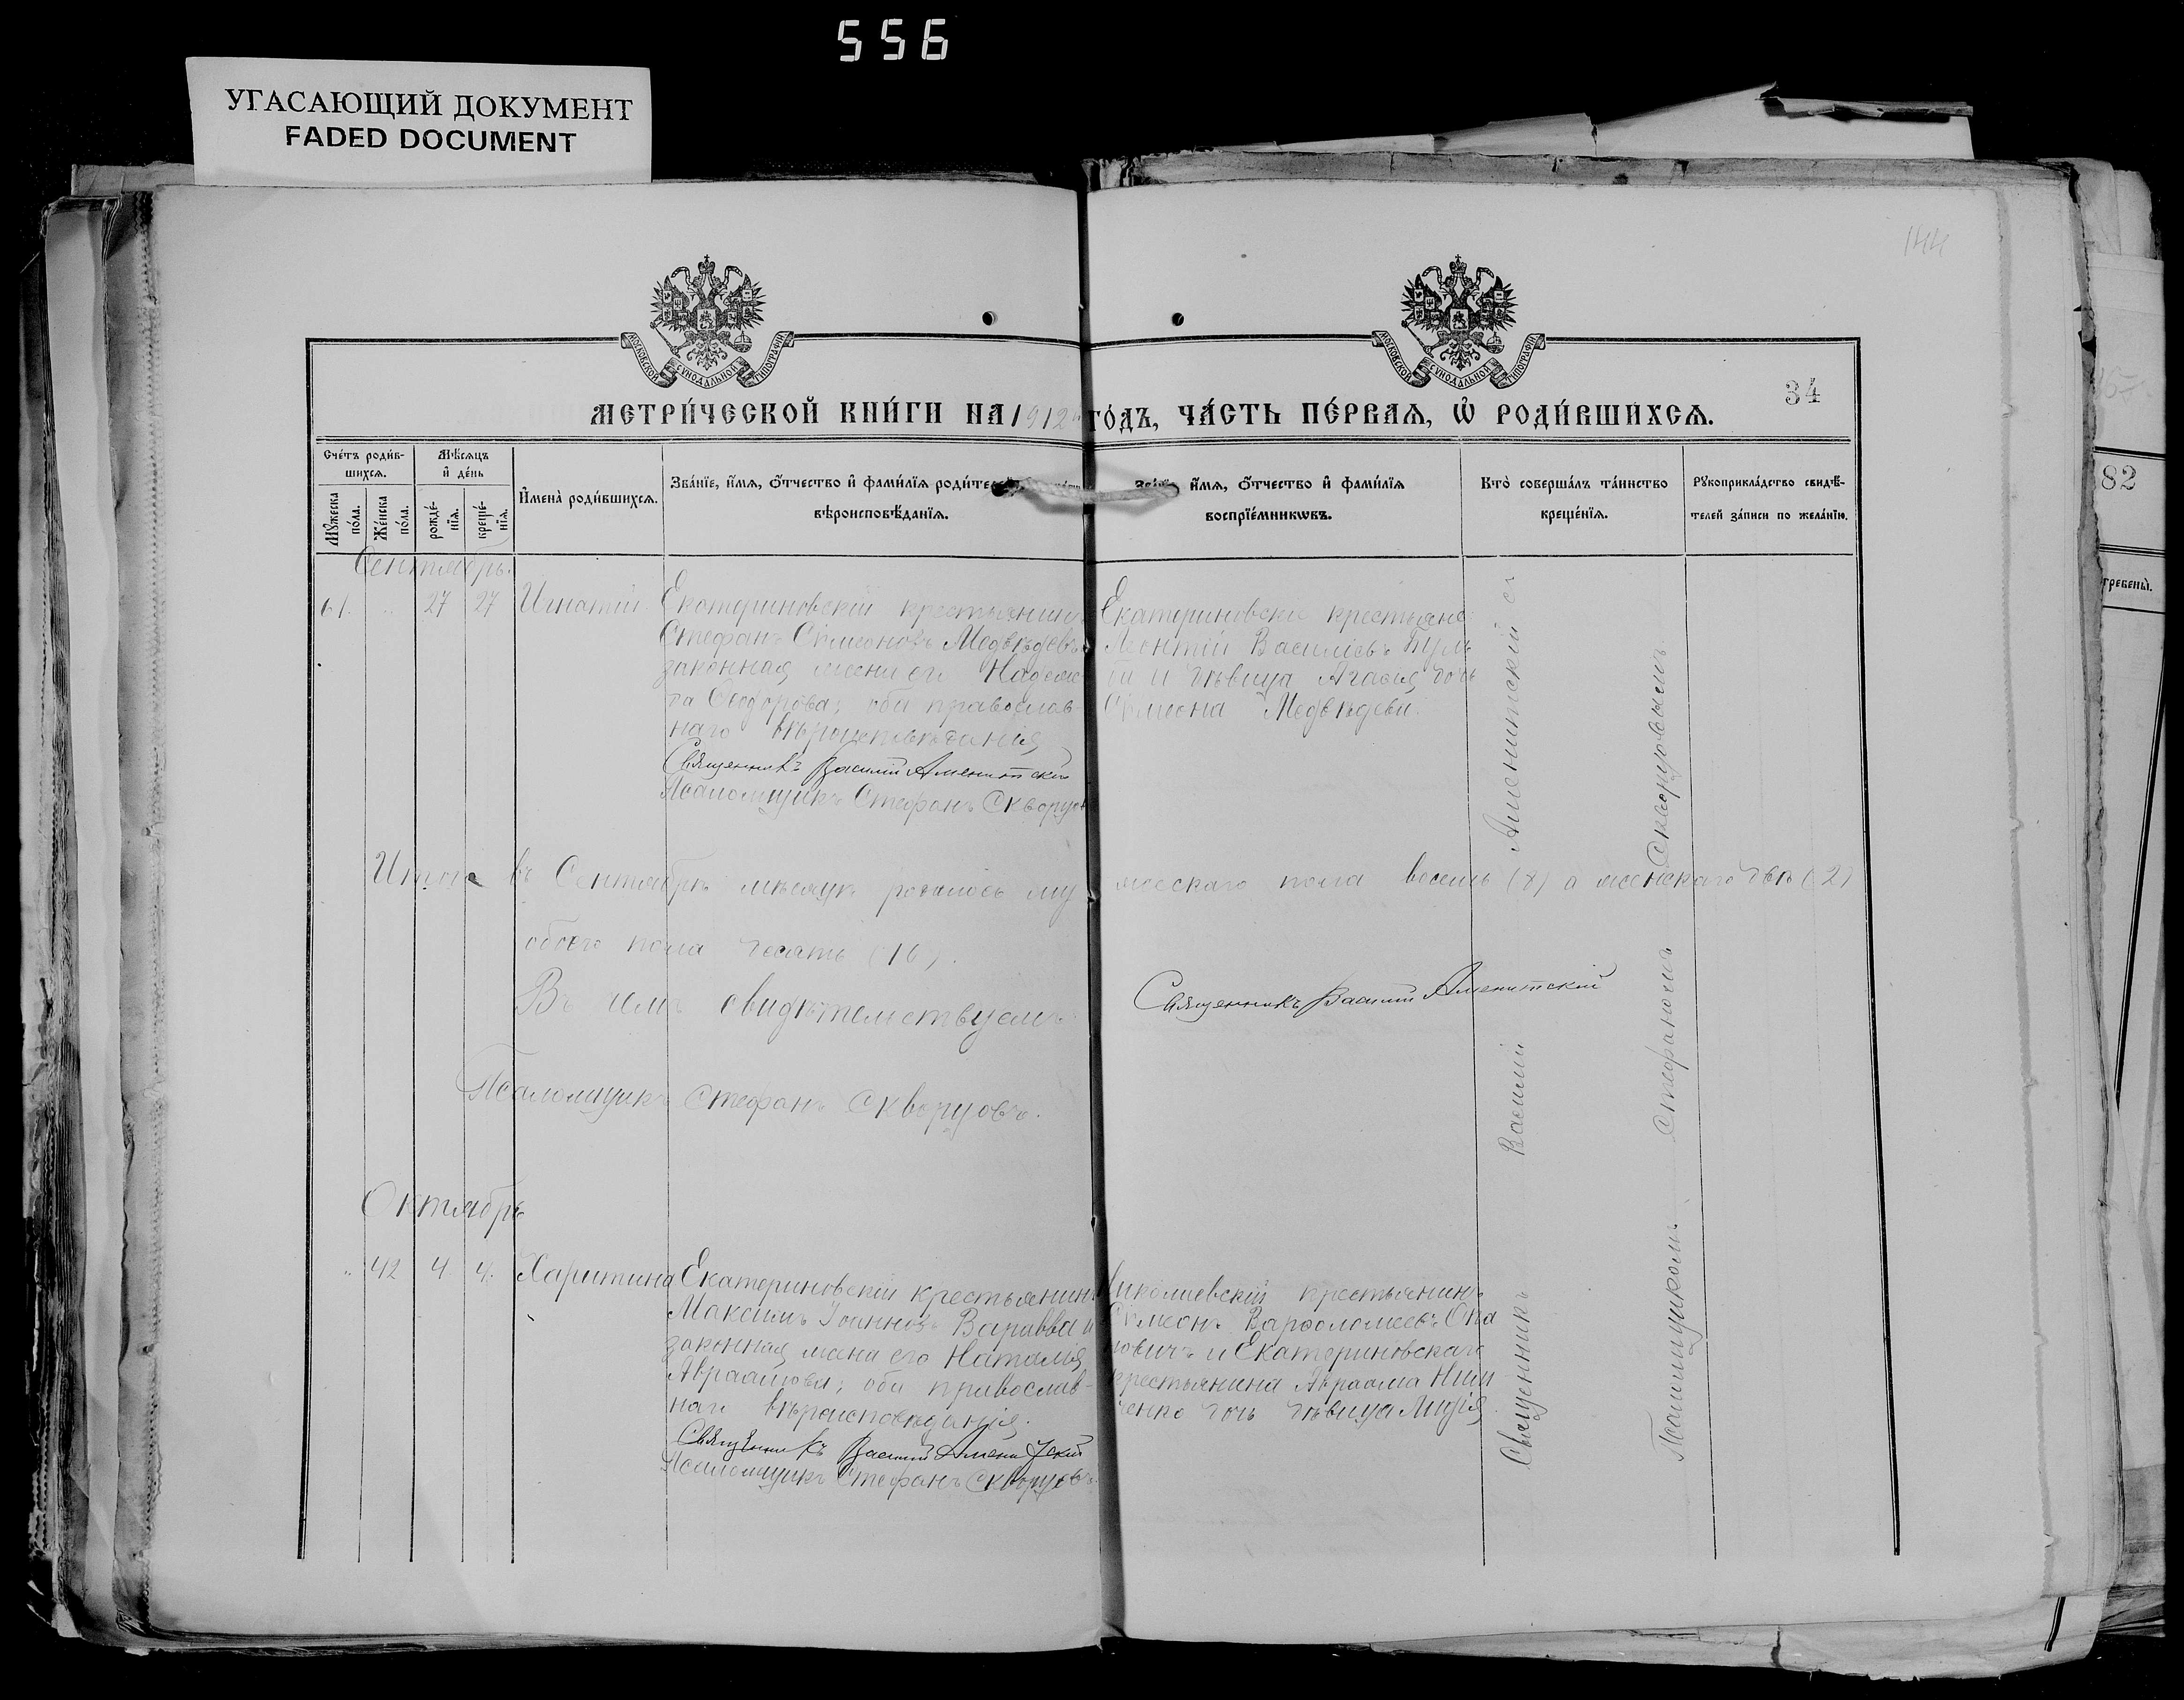 556
УГАСАЮЩИЙ ДОКУМЕНТ
FADED DOCUMENT
144
МОСКОВСКОЙ СѴНОДАЛЬНОЙ ТИПОГРАФІИ
МОСКОВСКОЙ СѴНОДАЛЬНОЙ ТИПОГРАФІИ
34
МЕТРИ́ЧЕСКОЙ КНИ́ГИ НА 1912 ГО́ДЪ, ЧА́СТЬ ПЕ́РВАЯ, Ѡ҆ РОДИ́ВШИХСЯ.
Сче́тъ роди́в-
шихся.
Мꙋ́жеска по́ла.
Же́нска по́ла.
Мѣ́сяцъ
и҆ де́нь
рожде́-
нїя.
креще́-
нїя.
И҆мена̀ роди́вшихся.
Зва́нїе, и҆́мя, ѻ҆́тчество и҆ фами́лїя роди́телей
вѣроисповѣ́данїя.
и҆́мя, ѻ҆́тчество и҆ фами́лїя
воспрїе́мникѡвъ.
Кто̀ соверша́лъ та́инство
креще́нїя.
Рꙋкоприкла́дство свидѣ́-
телей за́писи по жела́нїю.
Сентябрь.
61. „ 27 27 Игнатій.
Екатериновскій крестьянинъ
Стефанъ Сѵмеоновъ Медвѣдевъ
законная жена его Надеж-
да Ѳеодорова; оба православ-
наго вѣроисповѣданія
Священникъ Василій Аменитскій
Псаломщикъ Стефанъ Скворцовъ
Екатериновскіе крестьяне:
Леонтій Василіевъ
и дѣвица Агаѳія дочь
Сѵмеона Медвѣдева.
Итого въ Сентябрѣ мѣсяцѣ родилось му жескаго пола восемь (8) а женскаго двѣ (2)
обоего пола десять (10).
Въ чемъ свидѣтельствуемъ:
Священникъ Василій Аменитскій
Псаломщикъ Стефанъ Скворцовъ.
Октябрь
„ 42 4. 4. Харитина
Екатериновскій крестьянинъ
Максимъ Іоанновъ Варавва и
законная жена его Наталія
Авраамова; оба православ-
наго вѣроисповѣданія.
Священникъ Василій Аменитскій
Псаломщикъ Стефанъ Скворцовъ.
Николаевскій крестьянинъ
Сѵмеонъ Варѳоломеевъ Опа
новичъ и Екатериновскаго
крестьянина Авраама
ченко дочь дѣвица Лидія.
Священникъ Василій Аменитскій съ
Псаломщикомъ Стефаномъ Скворцовымъ
82
гребены̀.